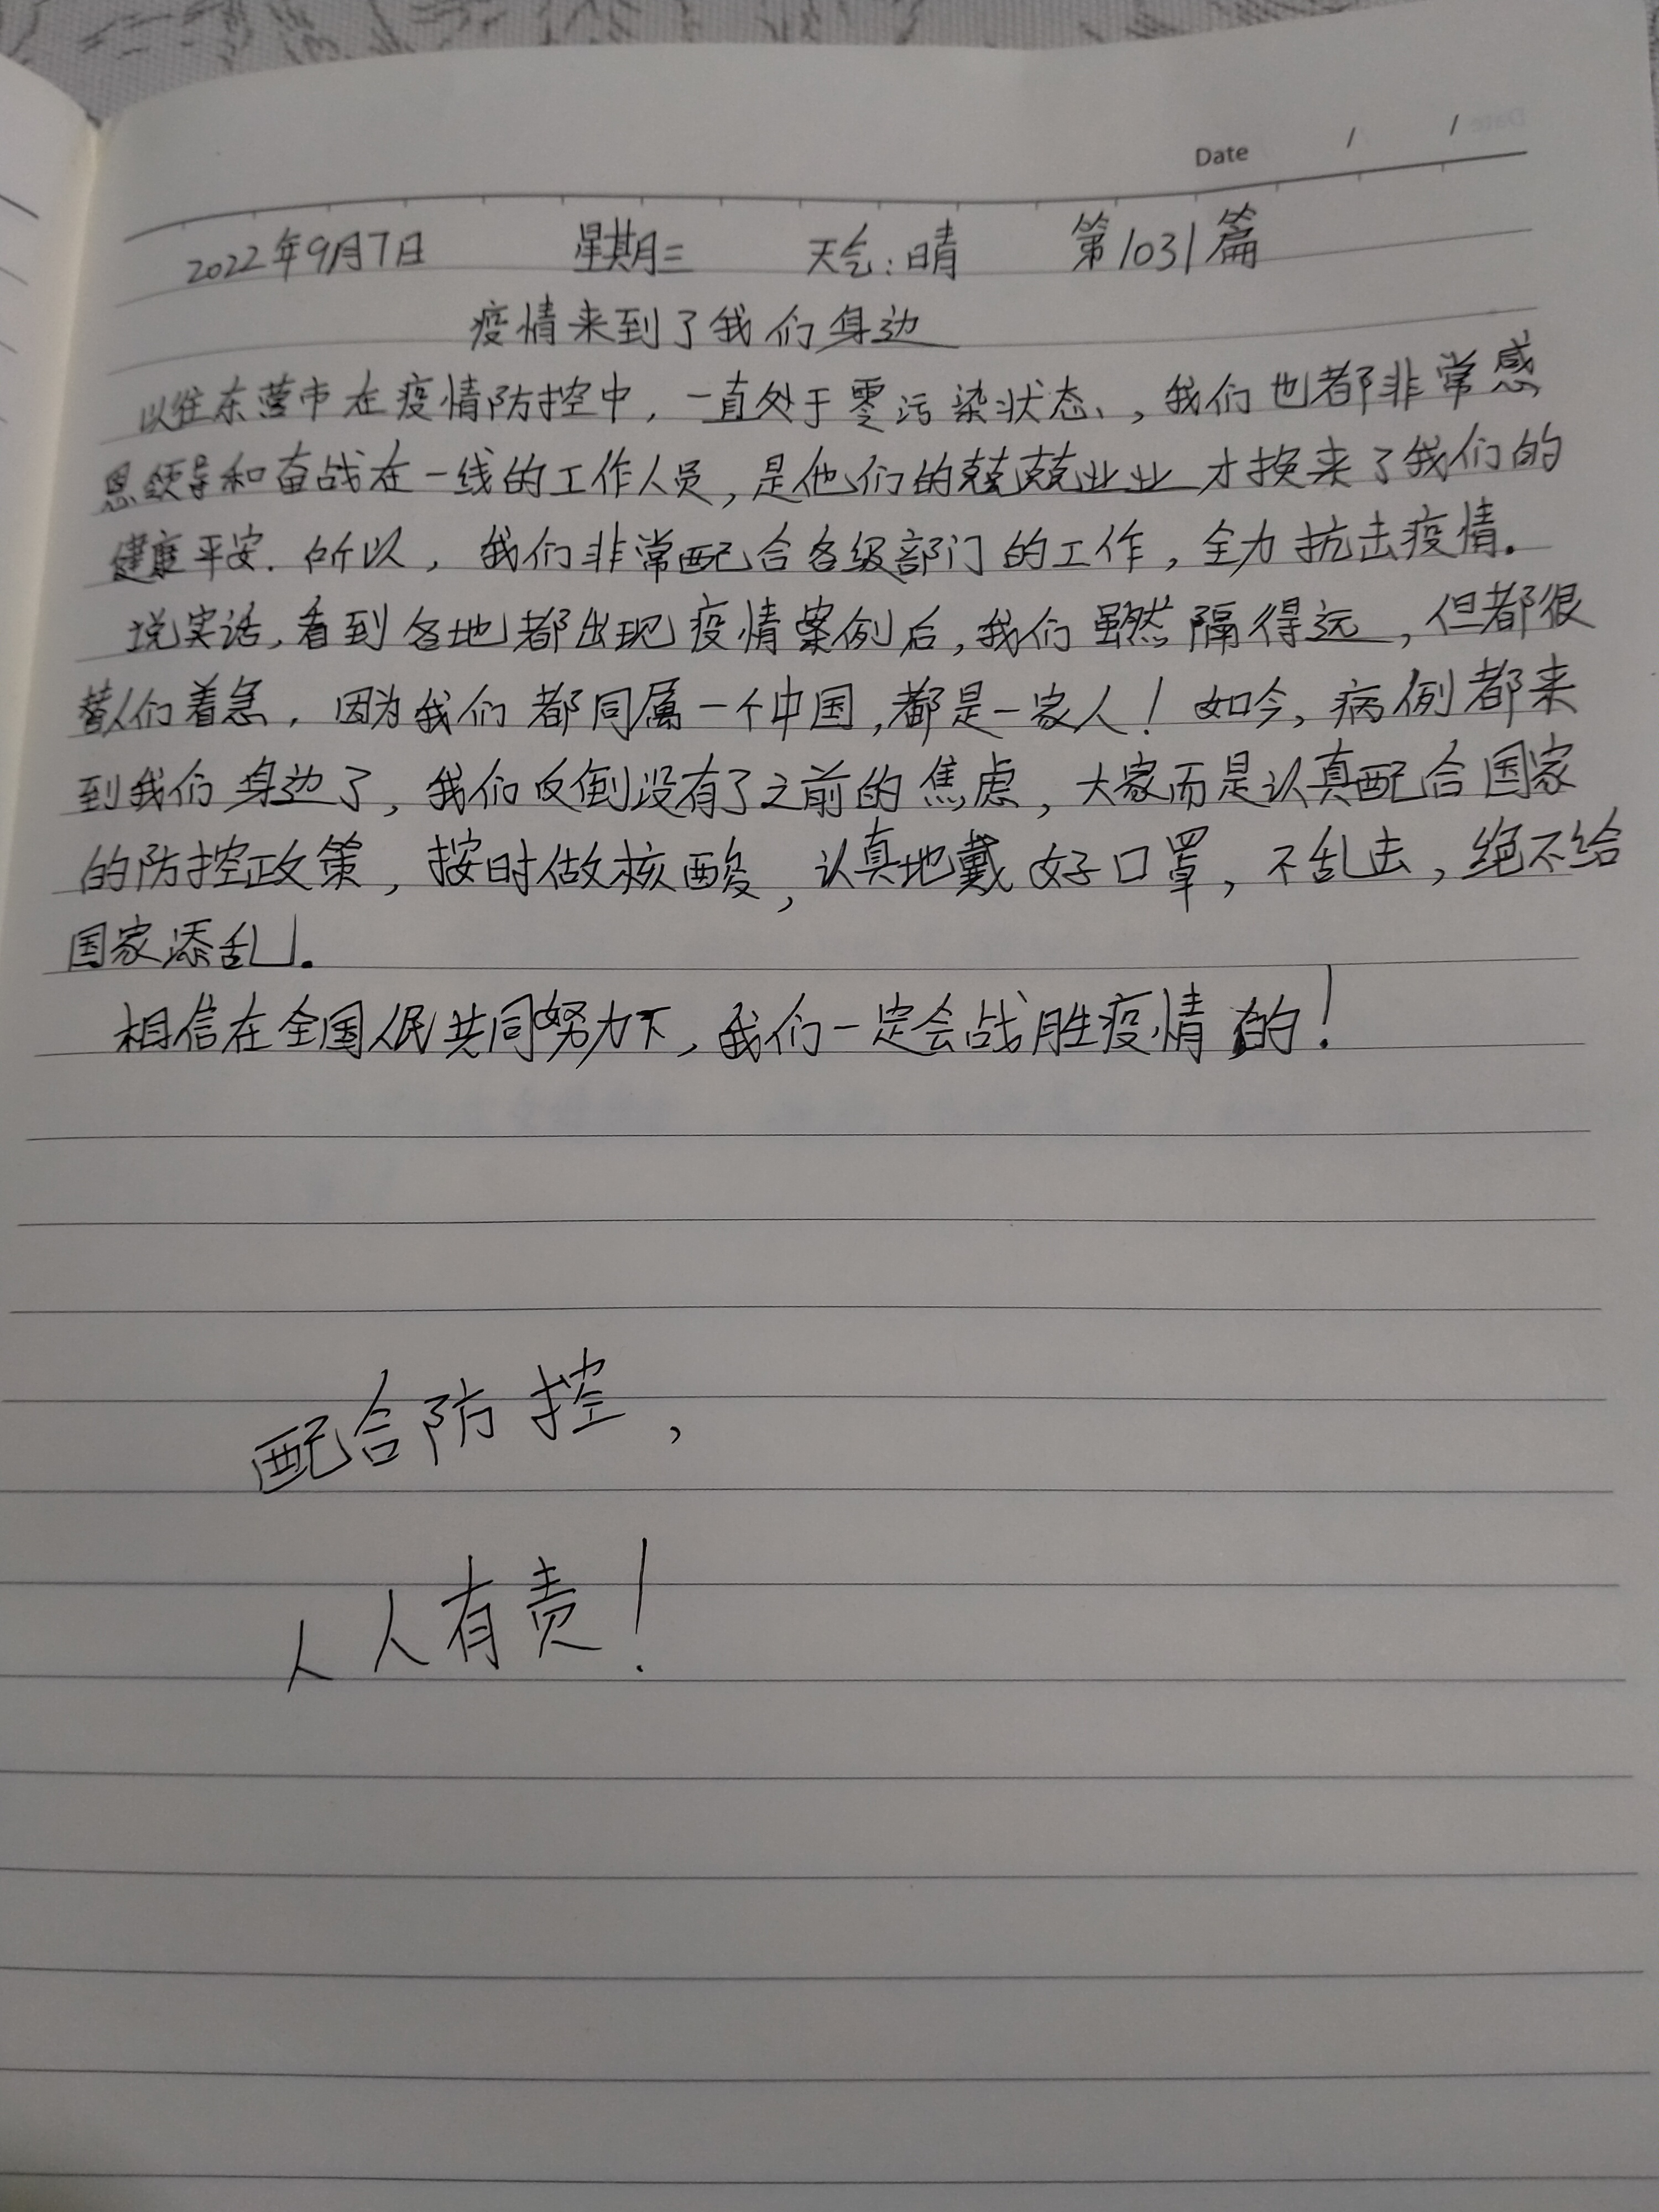 Date / /
2022年9月7日 星期三 天气:晴 第1031篇
疫情来到了我们身边
以往东营市在疫情防控中,一直处于零污染状态、,我们也都非常感
恩领导和奋战在一线的工作人员,是他们的兢兢业业才换来了我们的
健康平安.所以,我们非常配合各级部门的工作,全力抗击疫情.
说实话,看到各地都出现疫情案例后,我们虽然隔得远,但都很
替人们着急,因为我们都同属一个中国,都是一家人!如今,病例都来
到我们身边了,我们反倒没有了之前的焦虑,大家而是认真配合国家
的防控政策,按时做核酸,认真地戴好口罩,不乱去,绝不给
国家添乱.
相信在全国人民共同努力下,我们一定会战胜疫情的!
配合防控,
人人有责!